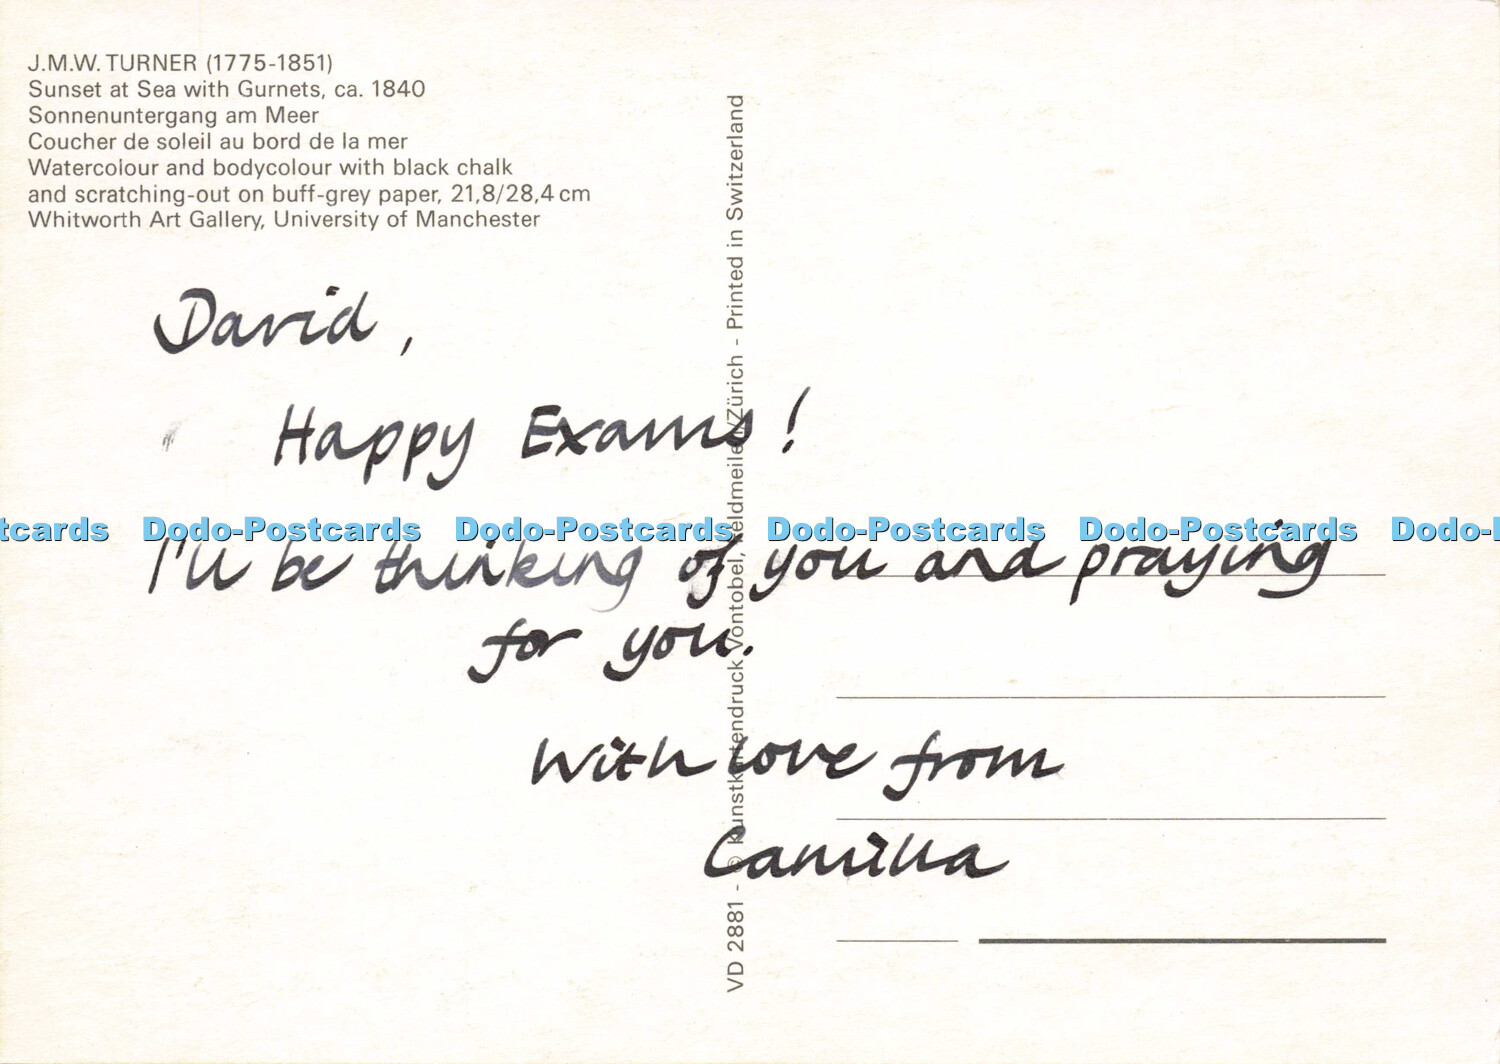 J.M.W. TURNER (1775-1851)
Sunset at Sea with Gurnets, ca. 1840
Sonnenuntergang am Meer
Coucher de soleil au bord de la mer
Watercolour and bodycolour with black chalk
and scratching-out on buff-grey paper, 21,8/28,4 cm
Whitworth Art Gallery, University of Manchester
David,
Happy Exams!
I'll be thinking of you and praying
for you.
With love from
Camilla
VD 2881 - © Kunstkartendruck Vontobel, Feldmeilen/Zürich - Printed in Switzerland
tcards Dodo-Postcards Dodo-Postcards Dodo-Postcards Dodo-Postcards Dodo-